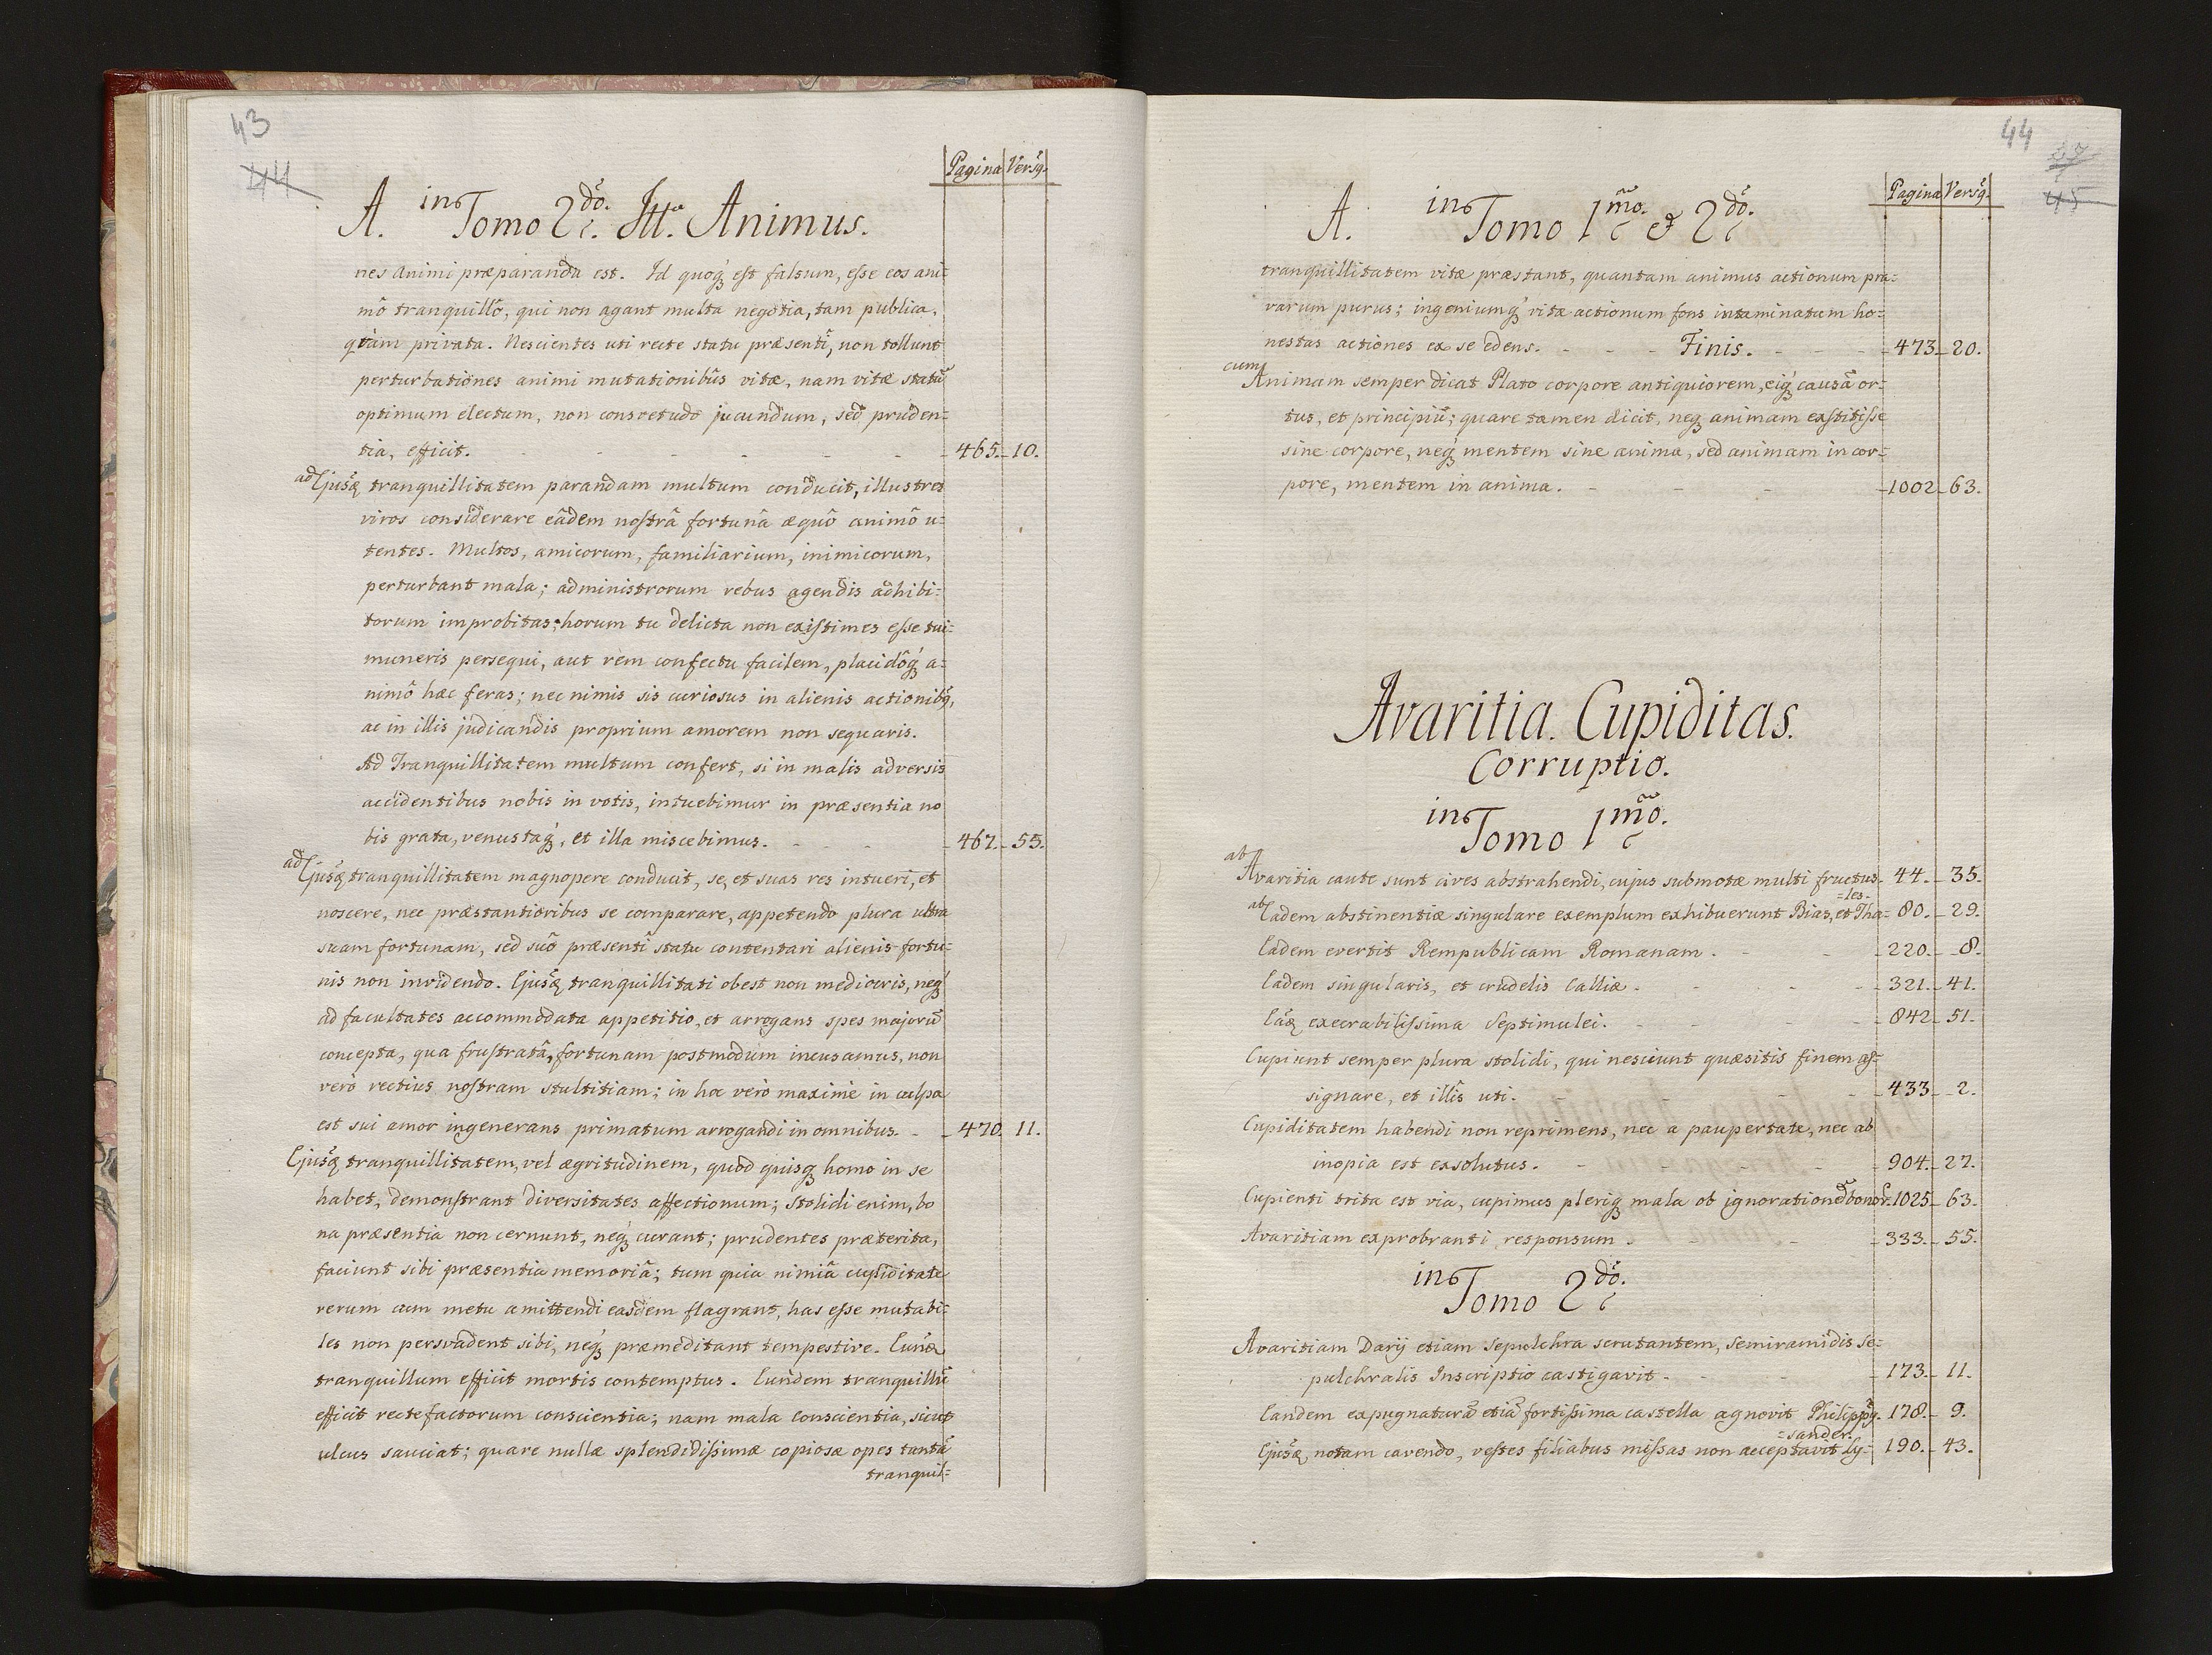 43
44
Pagina Versq́.
A. in Tomo 2do. Itt. Animus.
nes animi præparanda est. Id quoq́ʒ est falsum, eſse eos ani-
mô tranquillô, qui non agant multa negotia, tam publica,
quàm privata. Nescientes uti recte statu præsenti, non tollunt
perturbationes animi mutationibus vitæ, nam vitæ statũ
optimum electum, non consvetudo jucundum, sed pruden-
tia, efficit. - - - - - - 465. 10.
ad Ejusdẽ tranquillitatem parandam multum conducit, illustres
viros considerare eâdem noſtrâ fortunâ æquô animô u-
tentes. Multos, amicorum, familiarium, inimicorum,
perturbant mala; administrorum rebus agendis adhibi-
torum improbitas; horum tu delicta non exiſtimes eſse tui
muneris persequi, aut rem confectu facilem, placidôq́ʒ a-
nimô hæc feras; nec nimis sis curiosus in alienis actionibq́,
ac in illis judicandis proprium amorem non sequaris.
Ad Tranquillitatem multum confert, si in malis adversis
accidentibus nobis in votis, intuebimur in præsentia no
bis grata, venustaq́ʒ, et illa miscebimus. - - - 467. 55.
ad Ejusdẽ tranquillitatem magnopere conducit, se, et suas res intueri, et
noscere, nec præstantioribus se comparare, appetendo plura ultra
suam fortunam, sed suô præsenti statu contentari alienis fortu-
nis non invidendo. Ejusdẽ tranquillitati obest non mediocris, neq́ʒ
ad facultates accommodata appetitio, et arrogans spes majorũ
concepta, qua fruſtratâ, fortunam postmodum incusamus, non
verò rectius noſtram stultitiam; in hoc verò maximè in culpa
est sui amor ingenerans primatum arrogandi in omnibus. - 470. 11.
Ejusdẽ tranquillitatem, vel ægritudinem, quod quisqʒ homo in se
habet, demonſtrant diversitates affectionum; stolidi enim, bo
na præsentia non cernunt, neq́ʒ curant; prudentes præterita,
faciunt sibi præsentia memoriâ; tum quia nimiâ cupiditate
rerum cum metu amittendi easdem flagrant, has eſse mutabi-
les non persvadent sibi, neq́ʒ præmeditant tempestive. Eundẽ
tranquillum efficit mortis contemptus. Eundem tranquillũ
efficit recte factorum conscientia; nam mala conscientia, sicut
ulcus sauciat; quare nullæ splendidiſsimæ copiosæ opes tantã
tranquil-
44
45
Pagina Versq́.
A. in Tomo 1mo. & 2do.
tranquillitatem vitæ præstant, quantam animus actionum pra-
varum purus; ingeniumq́ʒ vitæ actionum fons intaminatum ho-
nestas actiones ex se edens. - - - Finis. - - - 473. 20.
cum Animam semper dicat Plato corpore antiquiorem, eiq́ʒ causâ or-
tus, et principiũ; quare tamen dicit, neqʒ animam exſtitiſse
sine corpore, neq́ʒ mentem sine anima, sed animam in cor-
pore, mentem in anima. - - - 1002. 63.
Avaritia. Cupiditas.
Corruptio.
in Tomo 1mo.
ab Avaritia caute sunt cives abstrahendi, cujus submotæ multi fructus. 44. 35.
ab Eadem abstinentiæ singulare exemplum exhibuerunt Bias, et Tha- 80. 29.
-les.
Eadem evertit Rempublicam Romanam. - - 220. 8.
Eadem singularis, et crudelis Calliæ. - - - 321. 41.
Eadẽ execrabiliſsima Septimulei. - - - 842. 51.
Cupiunt semper plura stolidi, qui nesciunt quæsitis finem aſ-
signare, et illis uti. - - - 433. 2.
Cupiditatem habendi non reprimens, nec a paupertate, nec ab
inopia est exsolutus. - - - 904. 27.
Cupienti trita est via, cupimus pleriqʒ mala ob ignorationẽ bonor. 1025. 63.
Avaritiam exprobranti responsum. - - 333. 55.
in Tomo 2do.
Avaritiam Darij etiam sepulchra scrutantem, Semiramidis se-
pulchralis Inscriptio castigavit. - - - 173. 11.
Eandem expugnaturã etiã fortiſsima castella agnovit Philippq́. 178. 9.
Ejusdẽ notam cavendo, veſtes filiabus miſsas non acceptavit Ly- 190. 43.
-sander.